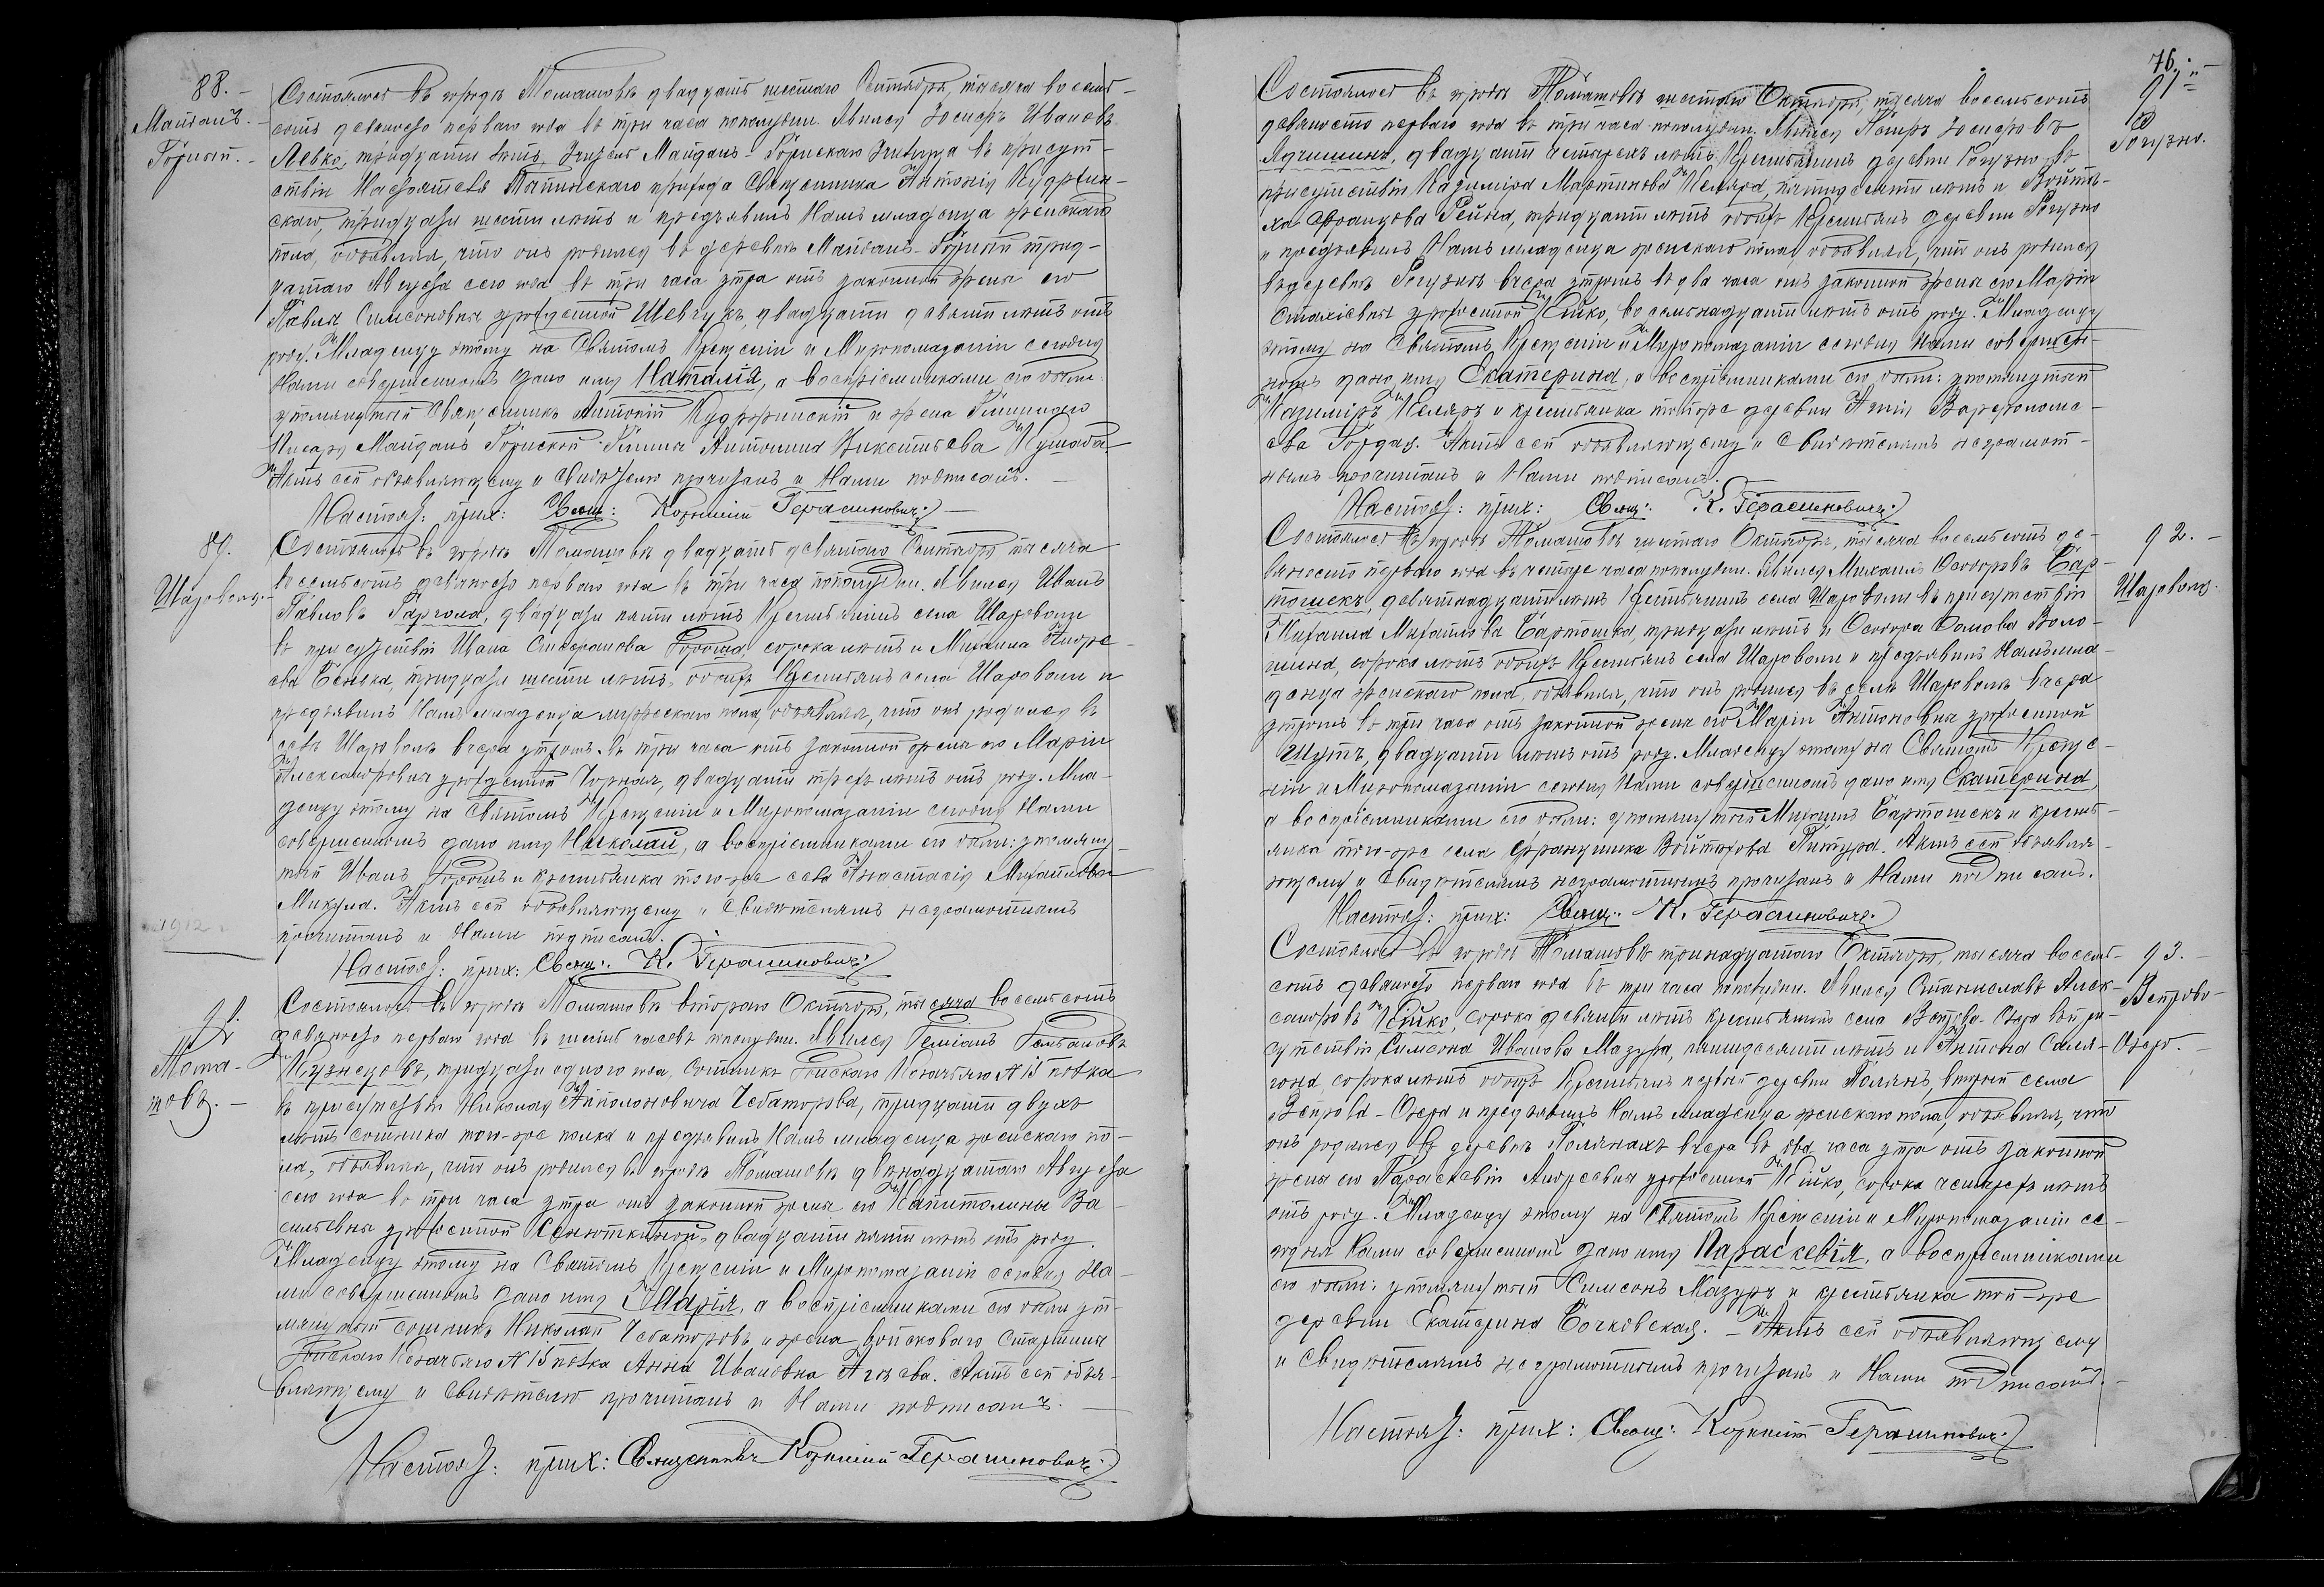 88. —
Майданъ. —
Гурный. —
Состоялось въ городѣ Томашовѣ двадцать шестаго Сентября, тысяча восемь-
сотъ девяносто перваго года въ три часа пополудни. Явился Іосифъ Ивановъ
Левко, тридцати лѣтъ, Майданъ-Гурнскаго въ присут-
ствіи Настоятеля прихода Священника Антонія Кудрин-
скаго, тридцати шести лѣтъ и предъявилъ Намъ младенца женскаго
пола, объявляя, что онъ родился въ деревнѣ Майданъ-Гурный трид-
цатаго Августа сего года въ три часа утра отъ законной жены его
Симеоновны урожденной Шевчукъ, двадцати девяти лѣтъ отъ
роду. Младенцу этому на Святомъ Крещеніи и Миропомазаніи сегодня
Нами совершенномъ дано имя Наталія, а воспріемниками его были:
упомянутый Священникъ Антоній и жена Гминнаго
Писаря Майданъ Гурнской Гмины Антонина Викентьева
Актъ сей объявляющему и Свидѣтелю прочитанъ и Нами подписанъ. —
Настоят: прих: Свящ: Корнилій Герасимовичъ —
89.
Шароволя. —
Состоялось въ городѣ Томашовѣ двадцать девятаго Сентября тысяча
восемьсотъ девяносто перваго года въ три часа пополудни. Явился Иванъ
Павловъ Гаргола, двадцати пяти лѣтъ Крестьянинъ села Шароволи
въ присутствіи Ивана Стефанова сорока лѣтъ и Михаила Андре-
ева тридцати шести лѣтъ, обоихъ Крестьянъ села Шароволи и
предъявилъ Намъ младенца мужескаго пола, объявляя, что онъ родился въ
селѣ Шароволѣ вчера утромъ въ три часа отъ законной жены его Маріи
Александровны урожденной Чорная, двадцати трехъ лѣтъ отъ роду. Мла-
денцу этому на Святомъ Крещеніи и Миропомазаніи сегодня Нами
совершенномъ дано имя Николай, а воспріемниками его были: упомяну-
тый Иванъ и крестьянка того-же села Анастасія Михайловна
Микула. Актъ сей объявляющему и Свидѣтелямъ неграмотнымъ
прочитанъ и Нами подписанъ.
1912
Настоят: прих: Свящ: К. Герасимовичъ
90.
Тома-
шовъ. —
Состоялось въ городѣ Томашовѣ втораго Октября, тысяча восемьсотъ
девяносто перваго года въ шесть часовъ пополудни. Явился
Кузнецовъ, тридцати одного года, Сотникъ Донскаго Казачьяго N 15 полка
въ присутствіи Николая Аполоновича Чеботарева, тридцати двухъ
лѣтъ сотника того-же полка и предъявилъ Намъ младенца женскаго по-
ла, объявляя, что онъ родился въ городѣ Томашовѣ двѣнадцатаго Августа
сего года въ три часа утра отъ законной жены его Капитолины Ва-
сильевны урожденной Сенюткиной, двадцати пяти лѣтъ отъ роду.
Младенцу этому на Святомъ Крещеніи и Миропомазаніи сегодня На-
ми совершенномъ дано имя Марія, а воспріемниками его были упо-
мянутый сотникъ Николай Чеботаревъ и жена Войсковаго Старшины
Донскаго Казачьяго N 15 полка Анна Ивановна Агѣева. Актъ сей объя-
вляющему и Свидѣтелю прочитанъ и Нами подписанъ. —
Настоят: прих: Священникъ Корнилій Герасимовичъ
76. —
91
Рогузно.
Состоялось въ городѣ Томашовѣ шестаго Октября, тысяча восемьсотъ
девяносто перваго года въ три часа пополудни, Явился Петръ Іосифовъ
Ядчишинъ, двадцати четырехъ лѣтъ, Крестьянинъ деревни Рогузно въ
присутствіи Казиміра Мартинова Келяра, пятидесяти лѣтъ и Войтѣ-
ха Францова Рейна, тридцати лѣтъ обоихъ Крестьянъ деревни Рогузно
и предъявилъ Намъ младенца женскаго пола, объявляя, что онъ родился
въ деревнѣ Рогузнѣ вчера утромъ въ два часа отъ законной жены его Маріи
Стахіевны урожденной Сѣйко, восемнадцати лѣтъ отъ роду. Младенцу
этому на Святомъ Крещеніи и Миропомазаніи сегодня Нами совершен-
номъ дано имя Екатерина, а воспріемниками его были: упомянутый
Казиміръ Келяръ и крестьянка той-же деревни Анна Варфоломе-
ева Гордай. Актъ сей объявляющему и Свидѣтелямъ неграмот-
нымъ прочитанъ и Нами подписанъ.
Настоят: прих: Свящ: К. Герасимовичъ
92. —
Шароволя.
Состоялось въ городѣ Томашовѣ шестаго Октября, тысяча восемьсотъ де-
вяносто перваго года въ четыре часа пополудни. Явился Михаилъ Ѳеодоровъ Бар-
тошекъ, девятнадцати лѣтъ Крестьянинъ села Шароволи въ присутствіи
Михаила Михайлова Бартошка, тридцати лѣтъ и Ѳеодора Ѳомова Воло-
шина, сорока лѣтъ обоихъ Крестьянъ села Шароволи и предъявилъ Намъ мла-
денца женскаго пола, объявляя, что онъ родился въ селѣ Шароволѣ вчера
утромъ въ три часа отъ законной жены его Маріи Антоновны урожденной
Шутъ, двадцати лѣтъ отъ роду. Младенцу этому на Святомъ Креще-
ніи и Миропомазаніи сегодня Нами совершенномъ дано имя Екатерина,
а воспріемниками его были: упомянутый Михаилъ Бартошекъ и кресть-
янка того-же села Францишка Войтѣхова Питура. Актъ сей объявля-
ющему и Свидѣтелямъ неграмотнымъ прочитанъ и Нами подписанъ.
Настоят: прих: Свящ: К. Герасимовичъ
93. —
Вепрово-
Озеро. —
Состоялось въ городѣ Томашовѣ тринадцатаго Октября, тысяча восемь-
сотъ девяносто перваго года въ три часа пополудни. Явился Станиславъ Алек-
сандровъ Кейко, сорока девяти лѣтъ крестьянинъ села Вепрова-Озера въ при-
сутствіи Симеона Иванова Мазура, пятидесяти лѣтъ и Антона
сорока лѣтъ обоихъ Крестьянъ первый деревни Полянъ, вторый села
Вепрова-Озера и предъявилъ Намъ младенца женскаго пола, объявляя, что
онъ родился въ деревнѣ Полянахъ вчера въ два часа утра отъ законной
жены его Параскевіи Андреевны урожденной Кейко, сорока четырехъ лѣтъ
отъ роду. Младенцу этому на Святомъ Крещеніи и Миропомазаніи се-
годня Нами совершенномъ дано имя Параскевія, а воспріемниками
его были: упомянутый Симеонъ Мазуръ и крестьянка той-же
деревни Екатерина Бочковская. — Актъ сей объявляющему
и Свидѣтелямъ неграмотнымъ прочитанъ и Нами подписанъ. —
Настоят: прих: Свящ: Корнилій Герасимовичъ